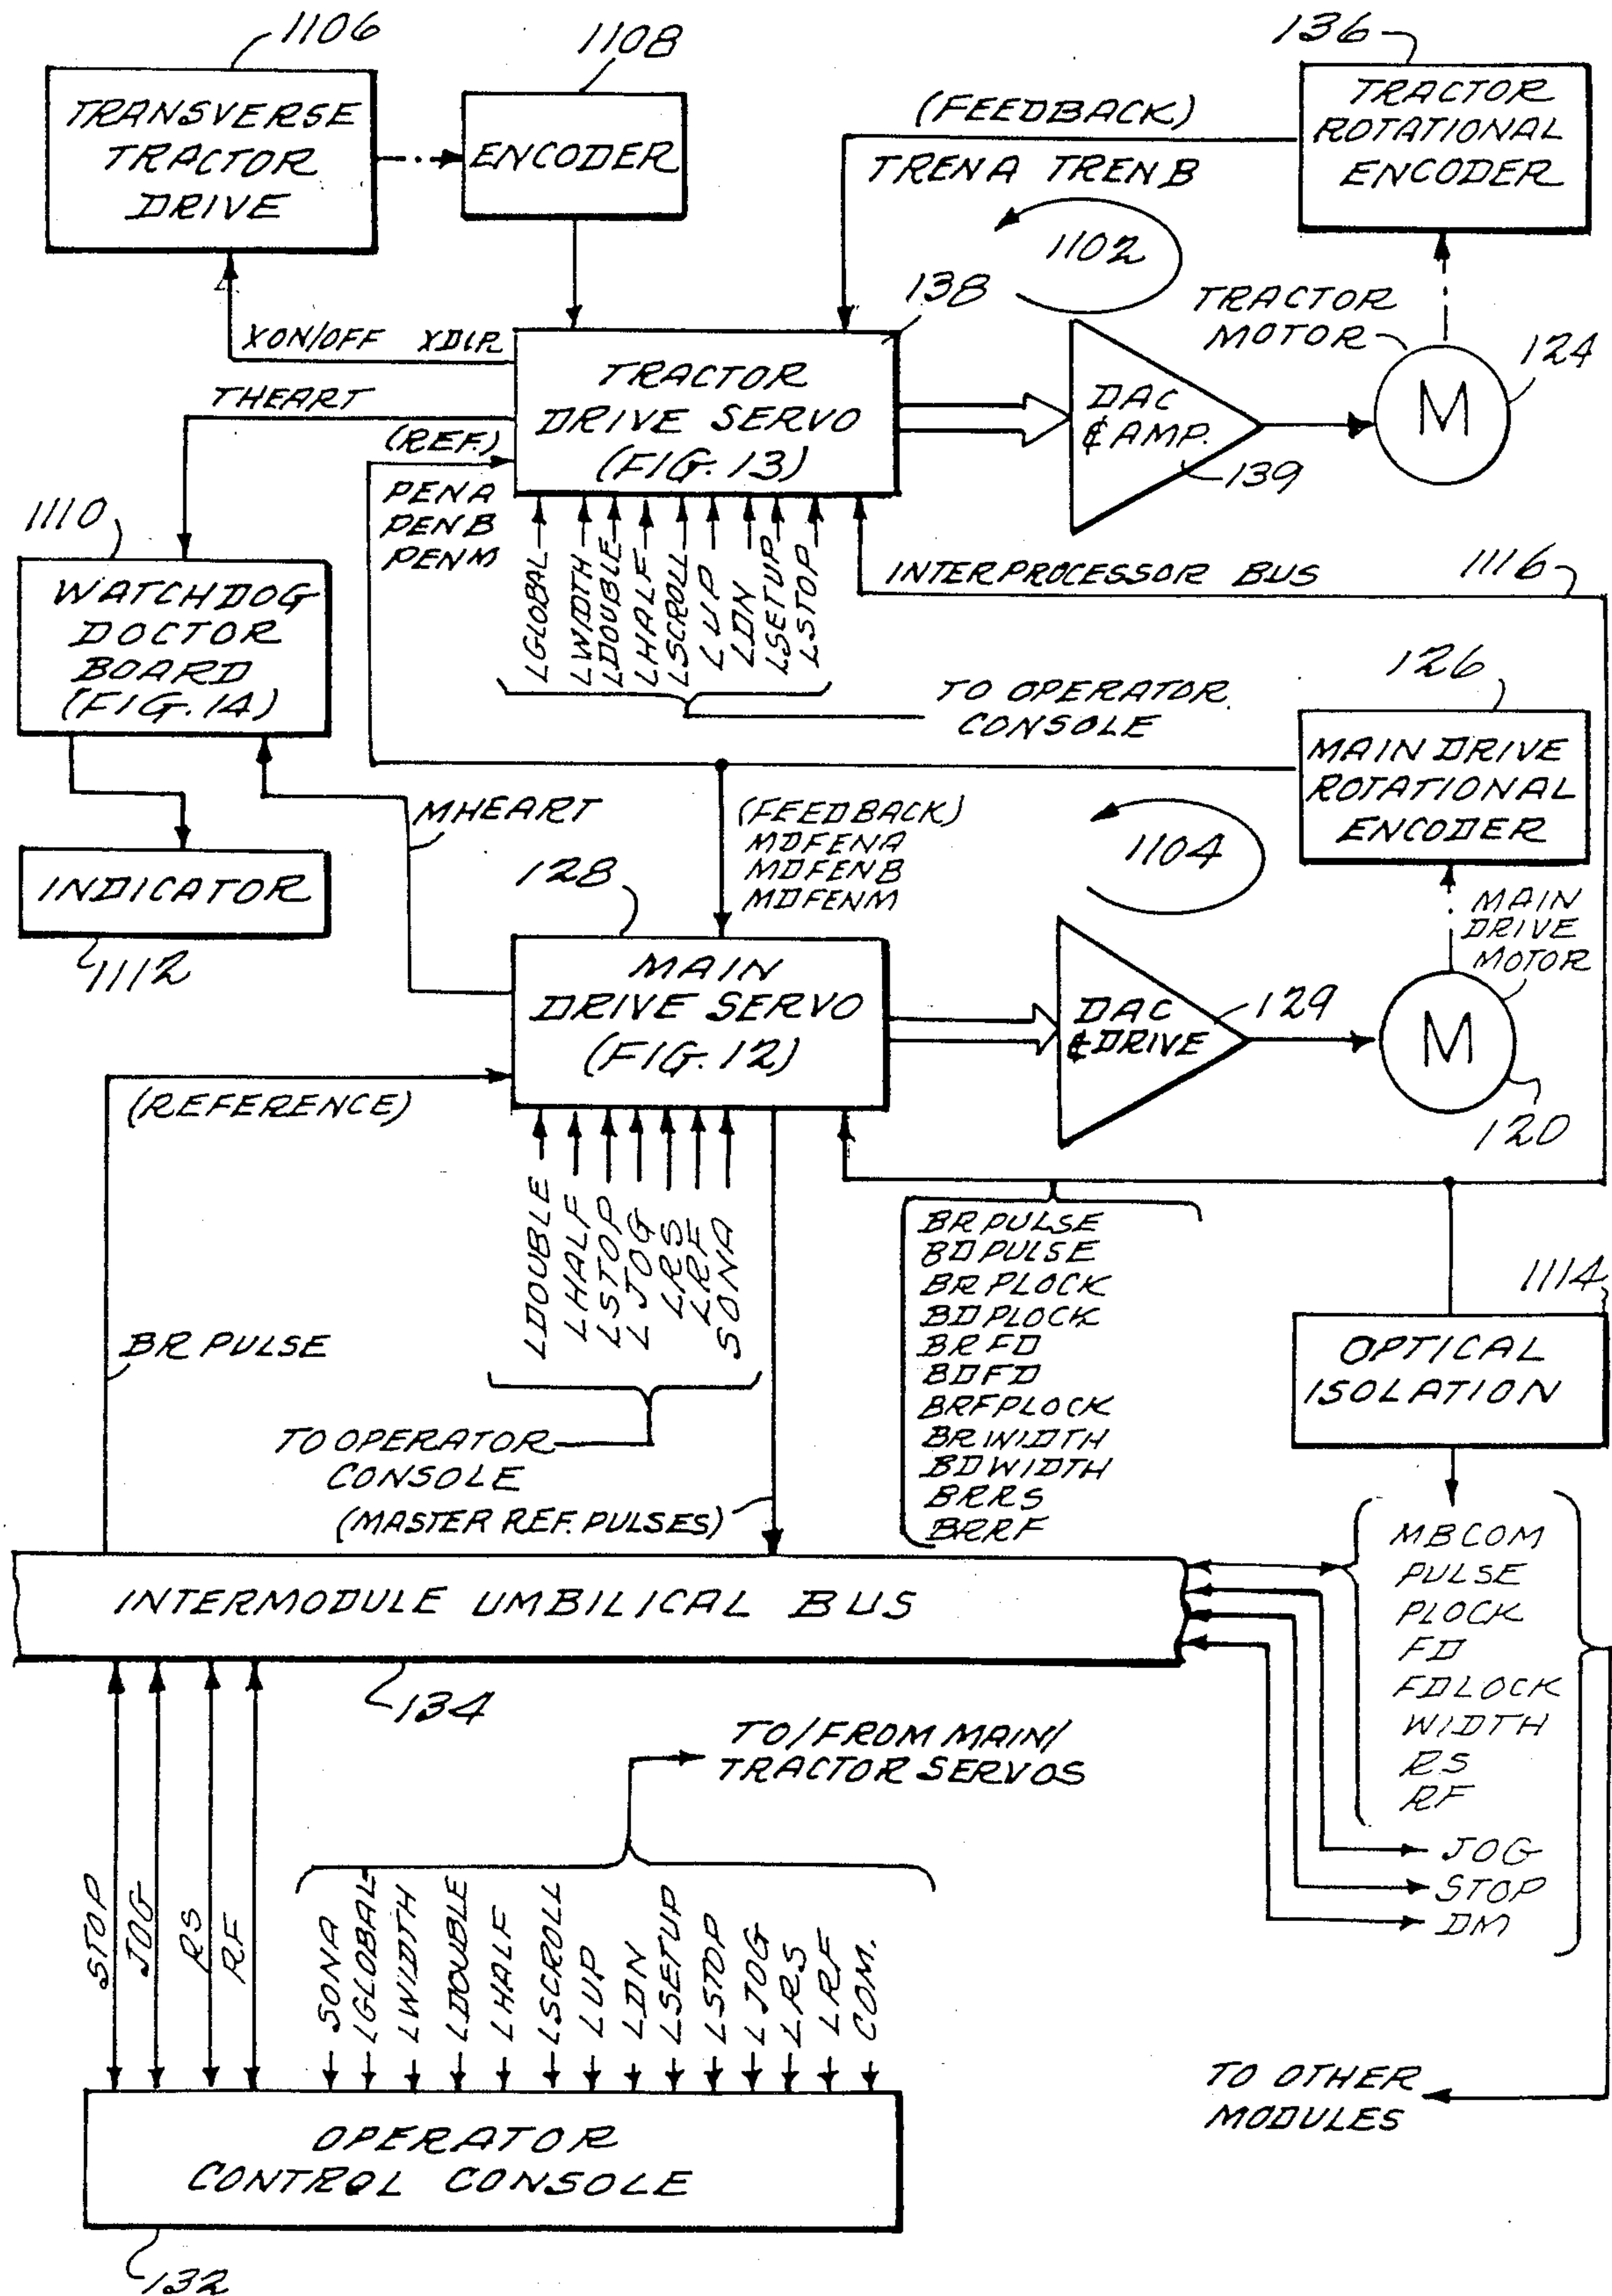 1106
1108
136
TRANSVERSE
TRACTOR
DRIVE
ENCODER
(FEEDBACK)
TRENA TRENB
TRACTOR
ROTATIONAL
ENCODER
1102
138
XON/OFF XDIR
TRACTOR
MOTOR
124
M
THEART
(REF.)
PENA
PENB
PENM
TRACTOR
DRIVE SERVO
(FIG. 13)
DAC
& AMP.
139
1110
WATCHDOG
DOCTOR
BOARD
(FIG. 14)
LGLOBAL
LWIDTH
LDOUBLE
LHALF
LSCROLL
LUP
LDN
LSETUP
LSTOP
INTERPROCESSOR BUS
1116
TO OPERATOR
CONSOLE
126
MAIN DRIVE
ROTATIONAL
ENCODER
MHEART
(FEEDBACK)
MDFENA
MDFENB
MDFENM
1104
INDICATOR
1112
128
MAIN
DRIVE SERVO
(FIG. 12)
DAC
& DRIVE
129
MAIN
DRIVE
MOTOR
M
120
(REFERENCE)
LDOUBLE
LHALF
LSTOP
LJOG
LRS
LRF
SONA
BR PULSE
BR PULSE
BD PULSE
BR PLOCK
BD PLOCK
BRFD
BDFD
BRFPLOCK
BR WIDTH
BD WIDTH
BRRS
BRRF
1114
OPTICAL
ISOLATION
TO OPERATOR
CONSOLE
(MASTER REF. PULSES)
INTERMODULE UMBILICAL BUS
134
MBCOM
PULSE
PLOCK
FD
FDLOCK
WIDTH
RS
RF
JOG
STOP
DM
TO/FROM MAIN/
TRACTOR SERVOS
STOP
JOG
RS
RF
SONA
LGLOBAL
LWIDTH
LDOUBLE
LHALF
LSCROLL
LUP
LDN
LSETUP
LSTOP
LJOG
LRS
LRF
COM.
TO OTHER
MODULES
OPERATOR
CONTROL CONSOLE
132